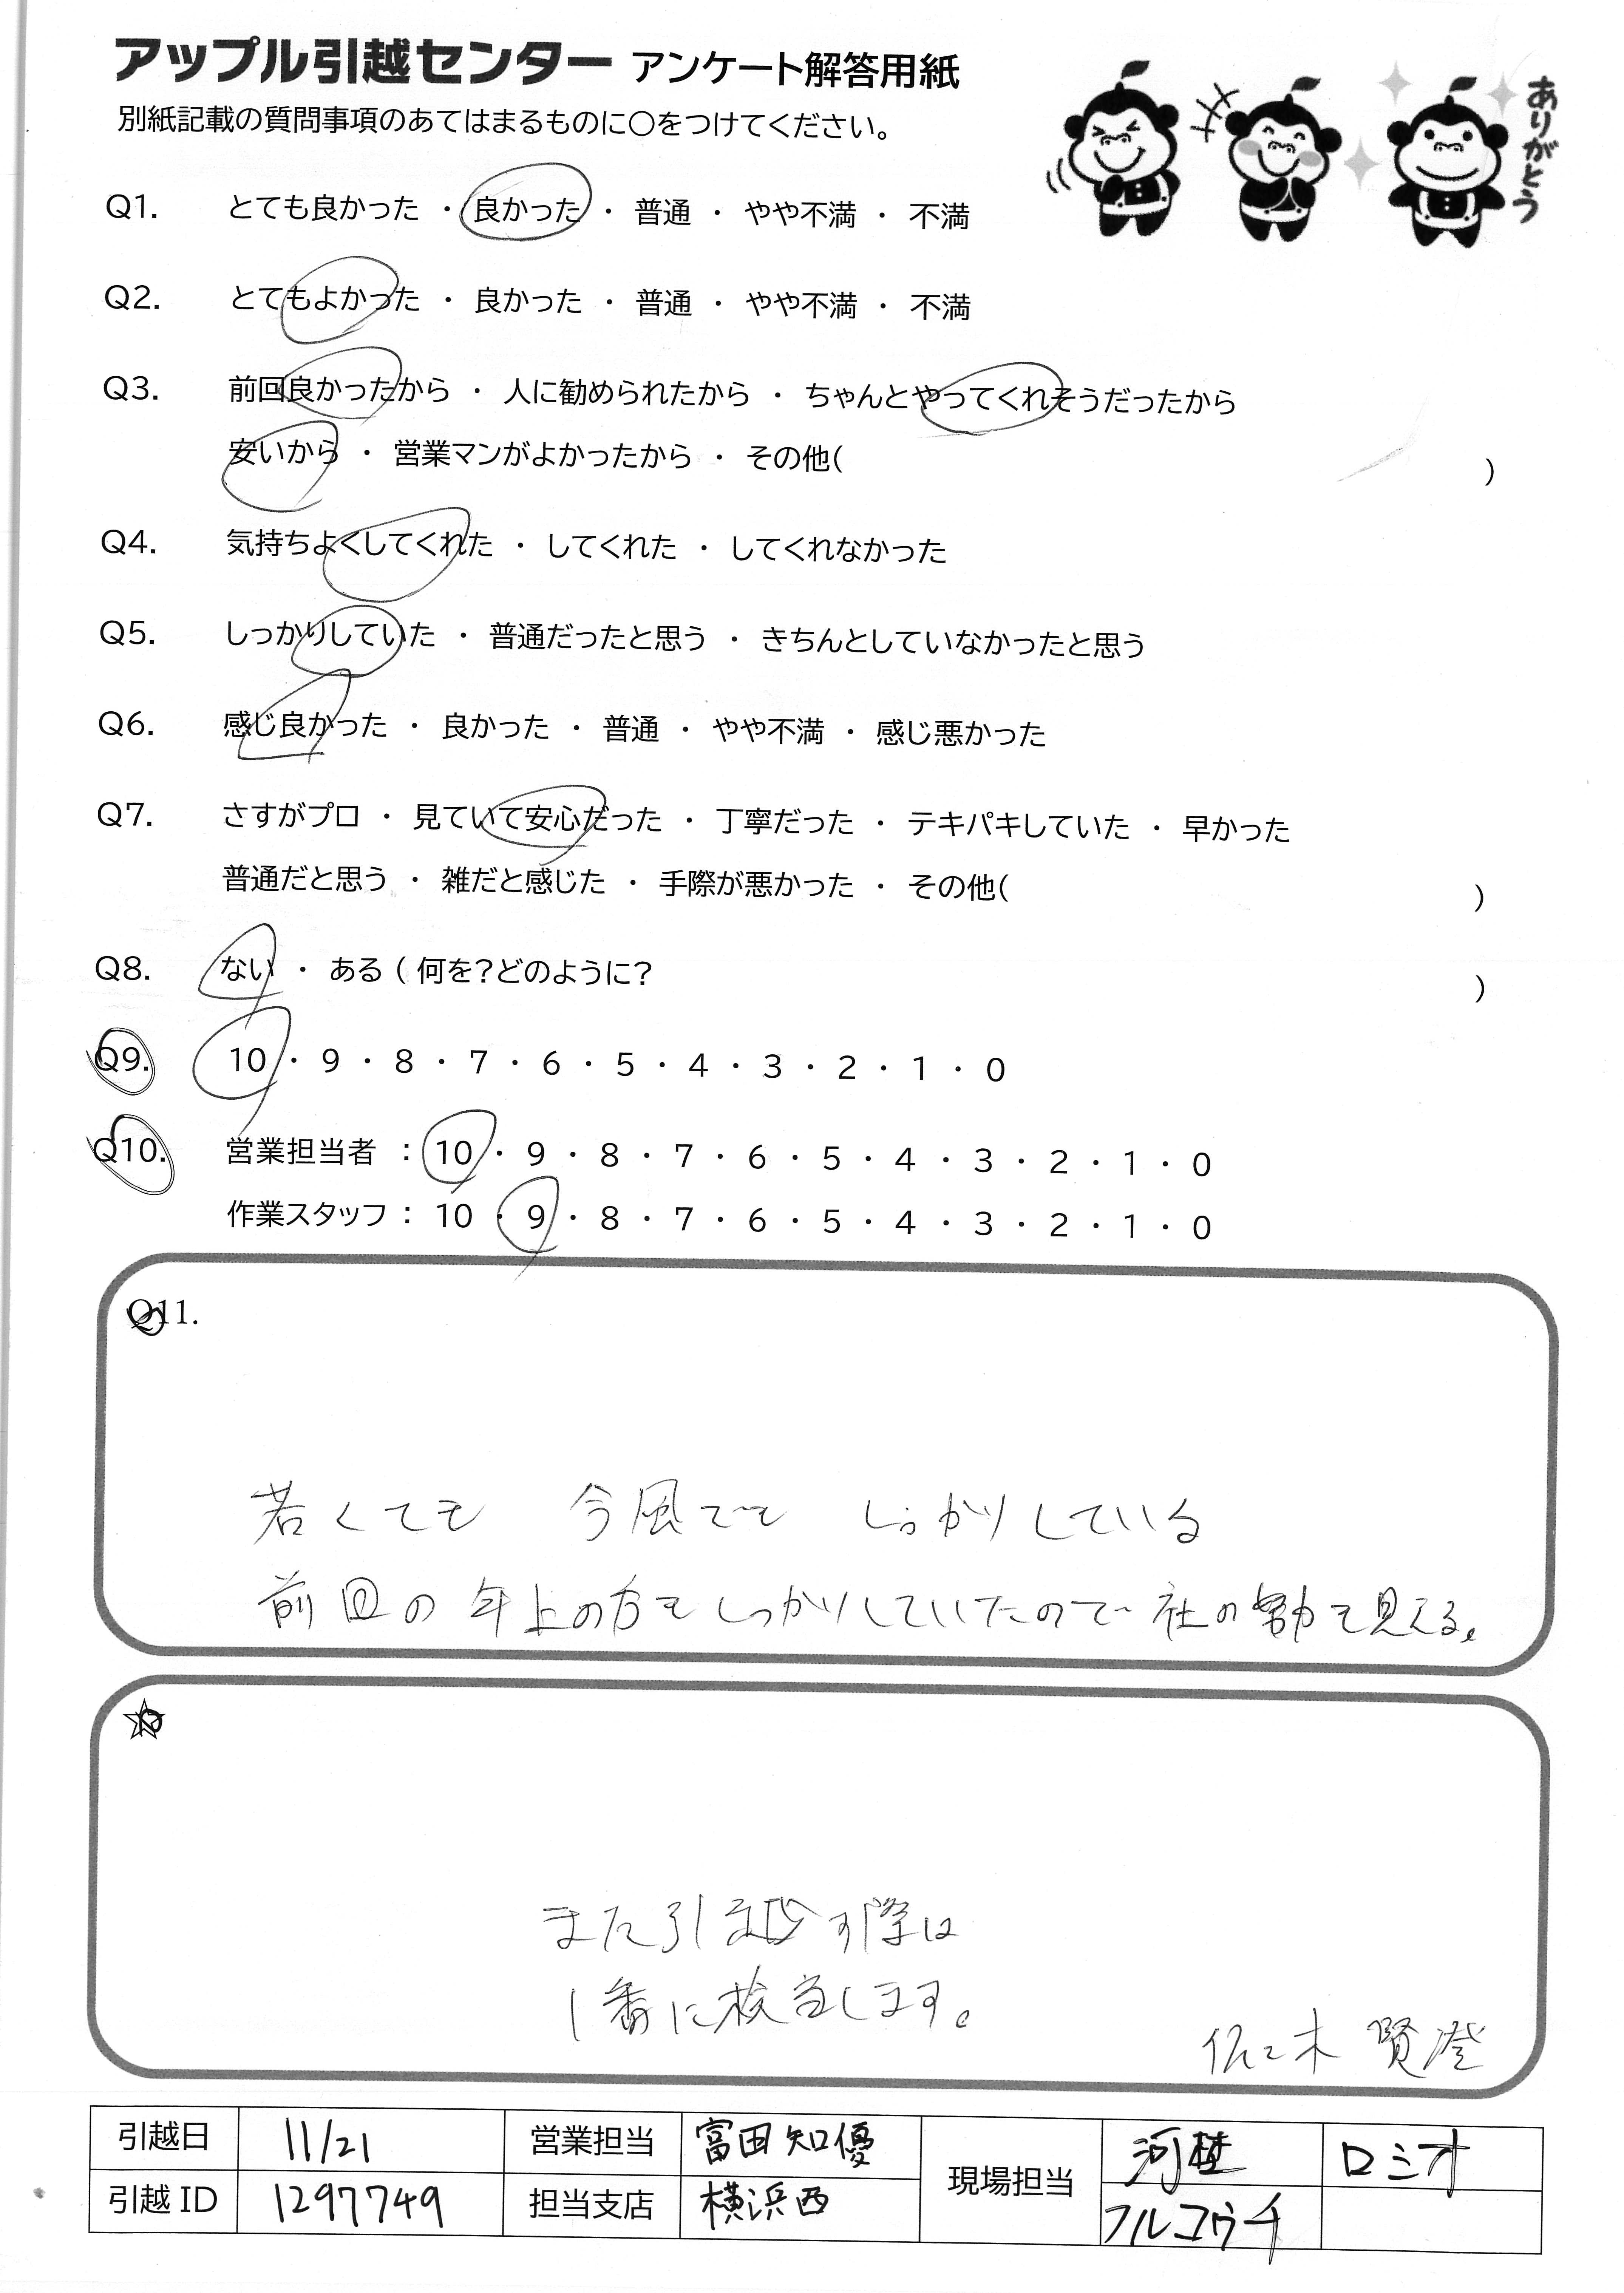 アップル引越センター アンケート解答用紙
ありがとう
別紙記載の質問事項のあてはまるものに○をつけてください。
Q1. とても良かった ・ 良かった ・ 普通 ・ やや不満 ・ 不満
Q2. とてもよかった ・ 良かった ・ 普通 ・ やや不満 ・ 不満
Q3. 前回良かったから ・ 人に勧められたから ・ ちゃんとやってくれそうだったから
安いから ・ 営業マンがよかったから ・ その他( )
Q4. 気持ちよくしてくれた ・ してくれた ・ してくれなかった
Q5. しっかりしていた ・ 普通だったと思う ・ きちんとしていなかったと思う
Q6. 感じ良かった ・ 良かった ・ 普通 ・ やや不満 ・ 感じ悪かった
Q7. さすがプロ ・ 見ていて安心だった ・ 丁寧だった ・ テキパキしていた ・ 早かった
普通だと思う ・ 雑だと感じた ・ 手際が悪かった ・ その他( )
Q8. ない ・ ある ( 何を?どのように? )
Q9. 10 ・ 9 ・ 8 ・ 7 ・ 6 ・ 5 ・ 4 ・ 3 ・ 2 ・ 1 ・ 0
Q10. 営業担当者 : 10 ・ 9 ・ 8 ・ 7 ・ 6 ・ 5 ・ 4 ・ 3 ・ 2 ・ 1 ・ 0
作業スタッフ : 10 ・ 9 ・ 8 ・ 7 ・ 6 ・ 5 ・ 4 ・ 3 ・ 2 ・ 1 ・ 0
Q11.
若くても 今風でも しっかりしている
前回の年上の方もしっかりしていたので社の努力も見える。
☆
また引越す際は
1番に検当します。
佐々木 賢澄
引越日 11/21 営業担当 富田知優 現場担当 河埜 ロミオ
引越ID 1297749 担当支店 横浜西 フルコウチ